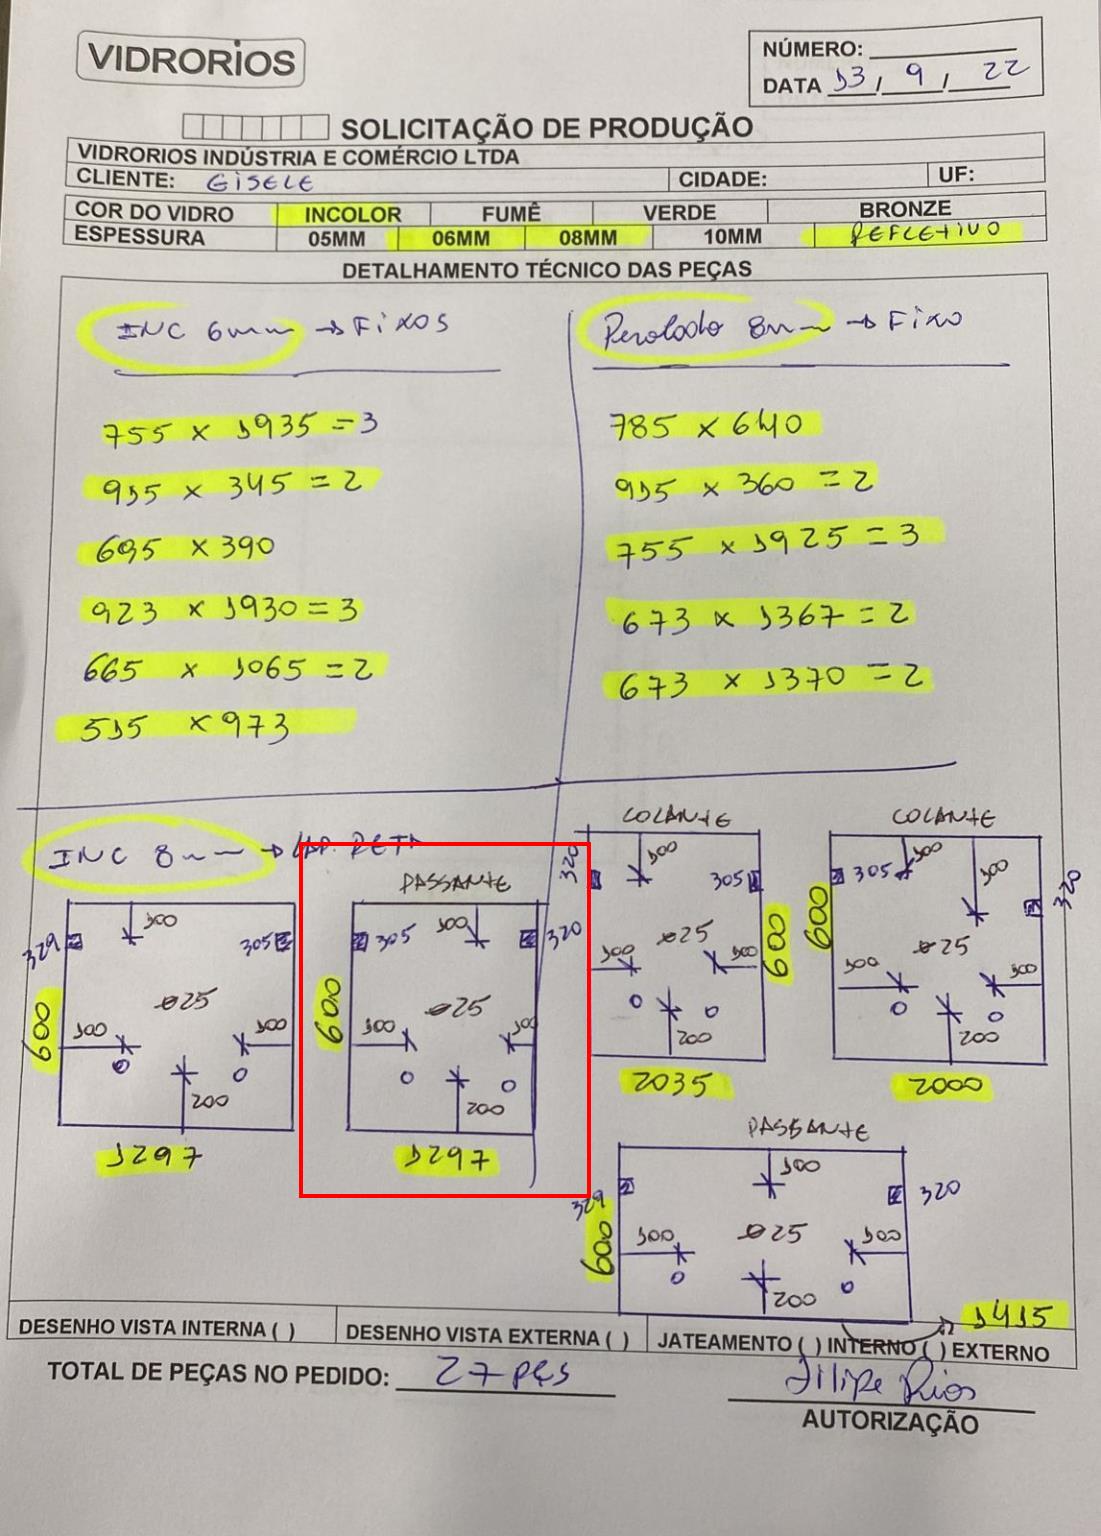 VIDRORIOS
NÚMERO:
DATA 13/9/22
SOLICITAÇÃO DE PRODUÇÃO
VIDRORIOS INDÚSTRIA E COMÉRCIO LTDA
CLIENTE: GISELE CIDADE: UF:
COR DO VIDRO INCOLOR FUMÊ VERDE BRONZE
ESPESSURA 05MM 06MM 08MM 10MM REFLETIVO
DETALHAMENTO TÉCNICO DAS PEÇAS
INC 6mm → FIXOS
755 x 1935 = 3
915 x 345 = 2
695 x 390
923 x 1930 = 3
665 x 1065 = 2
515 x 973
Perolado 8mm → FIXO
785 x 640
915 x 360 = 2
755 x 1925 = 3
673 x 1367 = 2
673 x 1370 = 2
INC 8mm → LAP. RETA
329 100 305
600 100 ø25 100
200
1297
PASSANTE
305 100 320
600 100 ø25 100
200
1297
COLANTE
320 100 305
100 ø25 100 600
200
2035
COLANTE
305 100 100 320
600 100 ø25 100
200
2000
PASSANTE
329 100 320
600 100 ø25 100
200
1415
DESENHO VISTA INTERNA ( ) DESENHO VISTA EXTERNA ( ) JATEAMENTO ( ) INTERNO ( ) EXTERNO
TOTAL DE PEÇAS NO PEDIDO: 27 pçs
Filipe Rios
AUTORIZAÇÃO